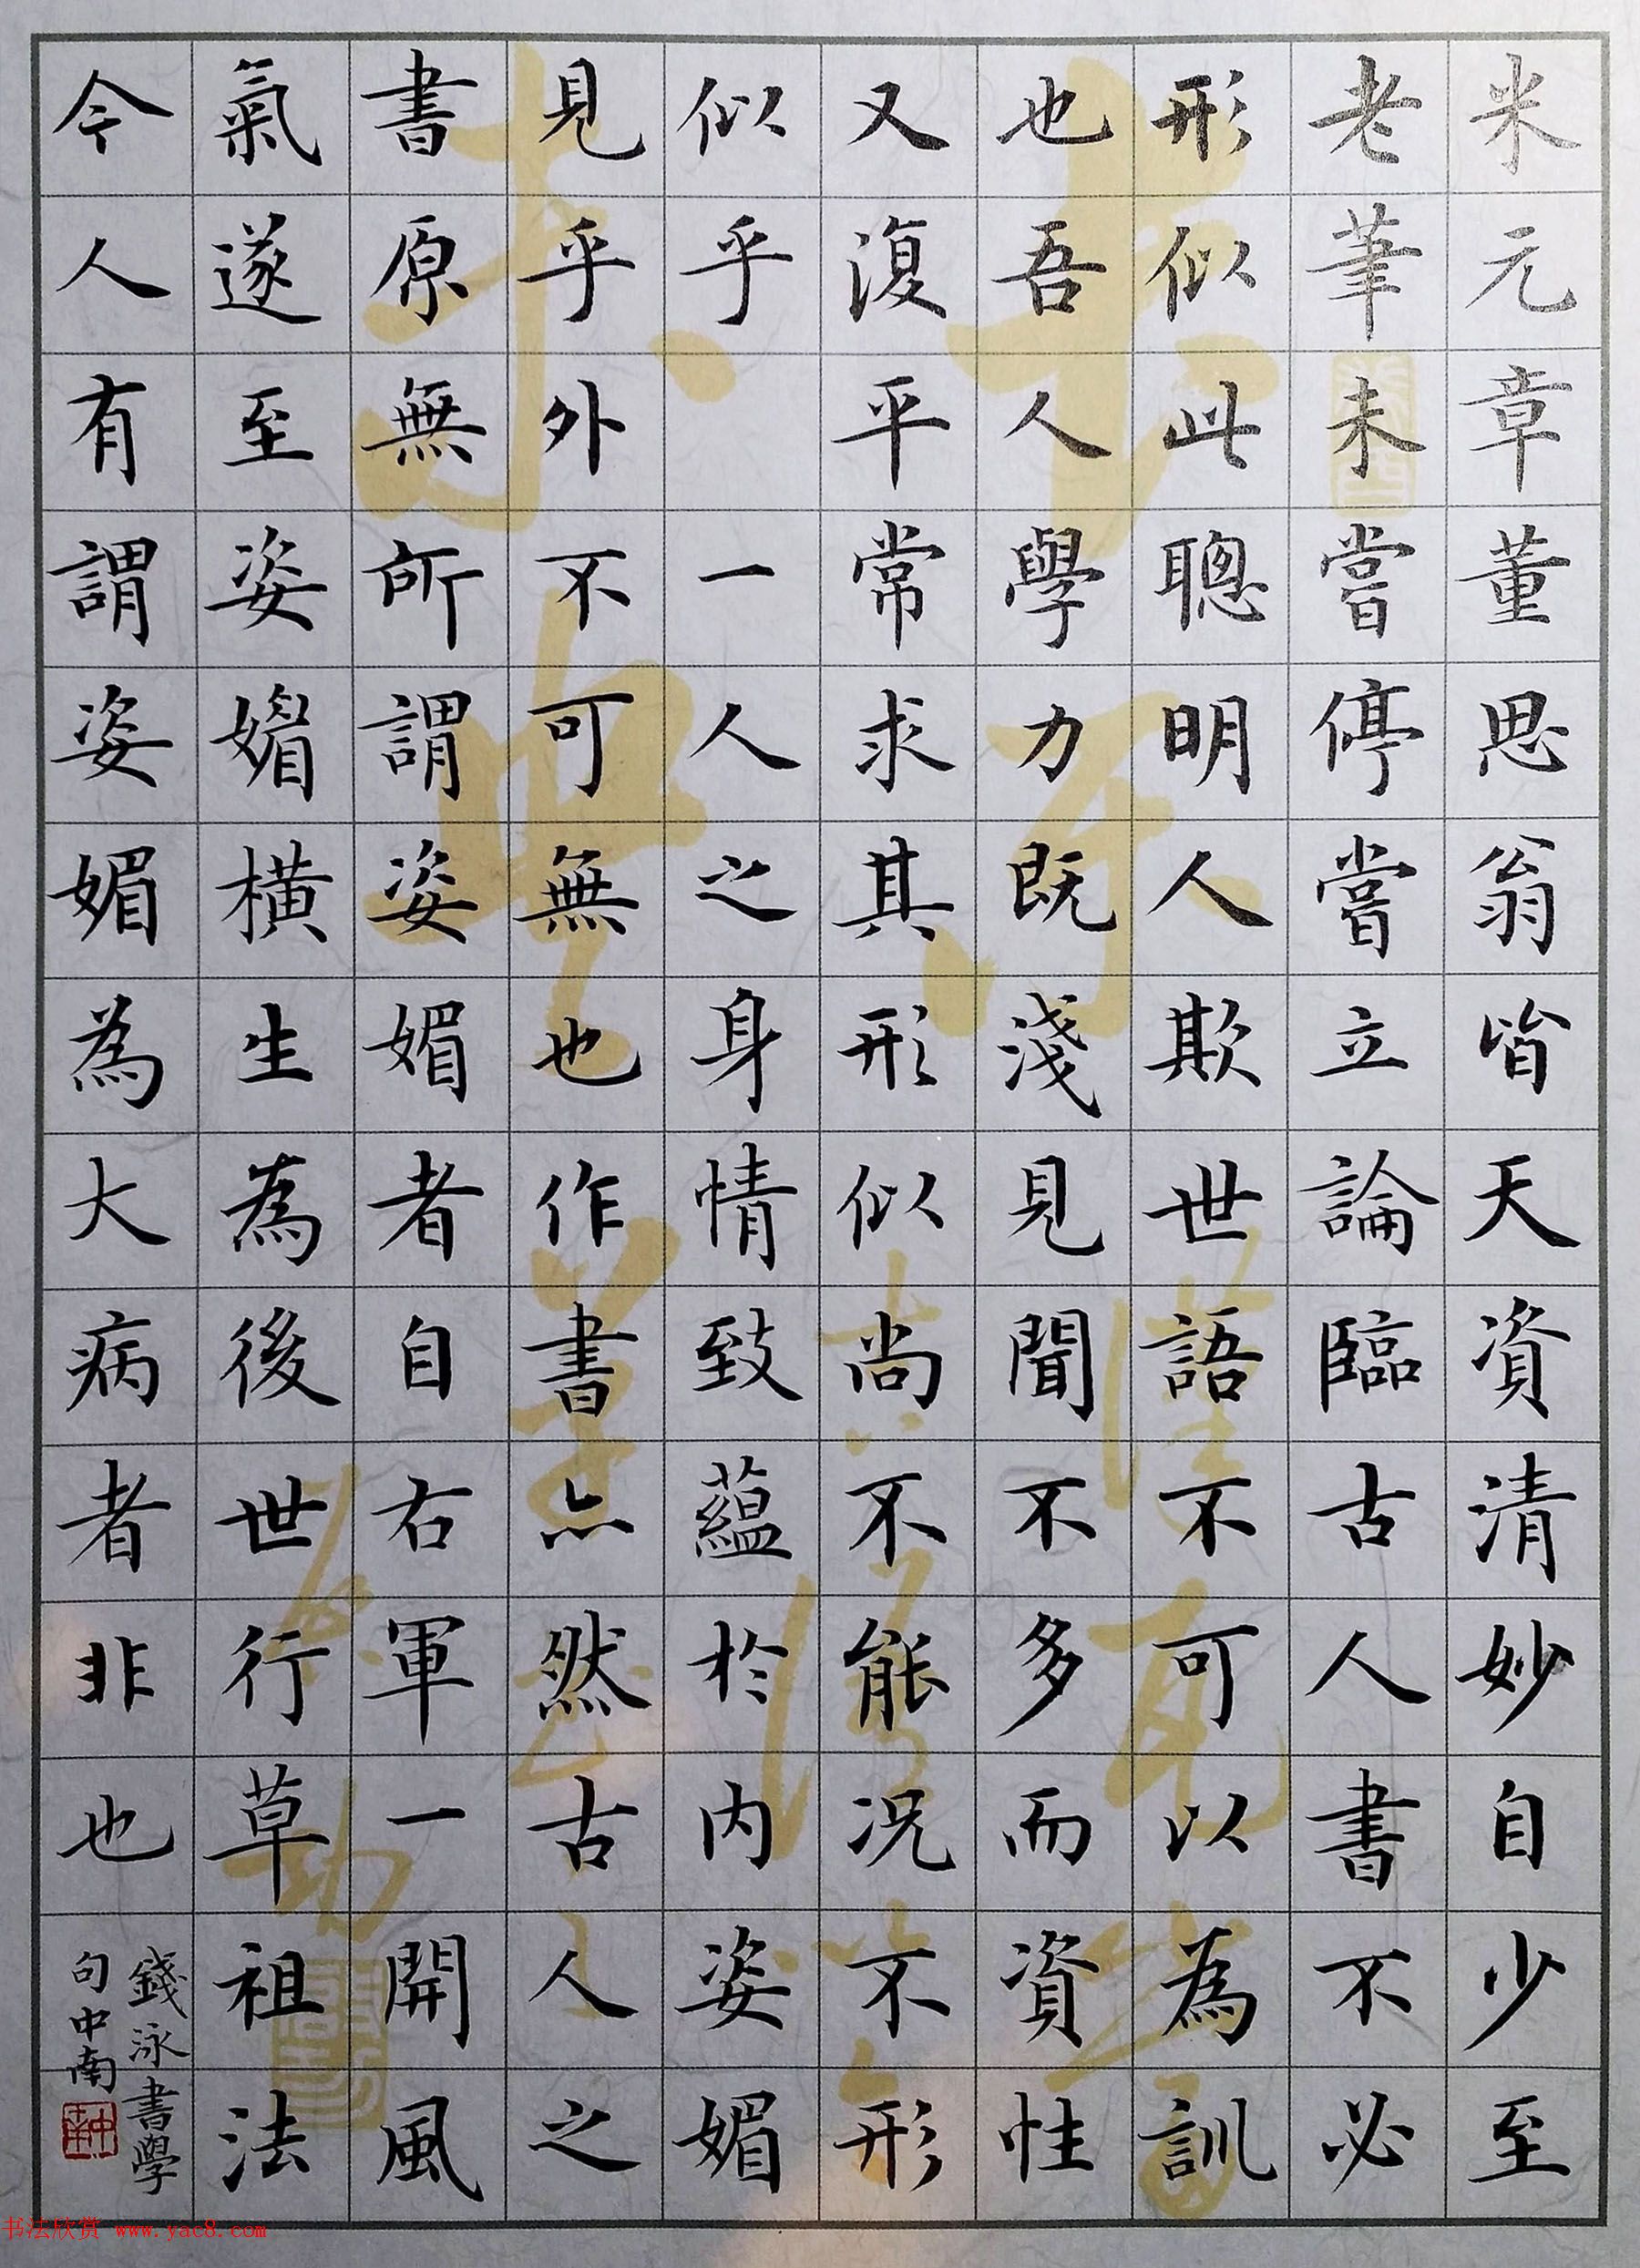 米元章董思翁皆天資清妙自少至
老筆未嘗停嘗立論臨古人書不必
形似此聰明人欺世語不可以為訓
也吾人學力既淺見聞不多而資性
又復平常求其形似尚不能况不形
似乎 一人之身情致蘊於内姿媚
見乎外不可無也作書亦然古人之
書原無所謂姿媚者自右軍一開風
氣遂至姿媚橫生為後世行草祖法
今人有謂姿媚為大病者非也
錢泳書學
句中南
书法欣赏 www.yac8.com